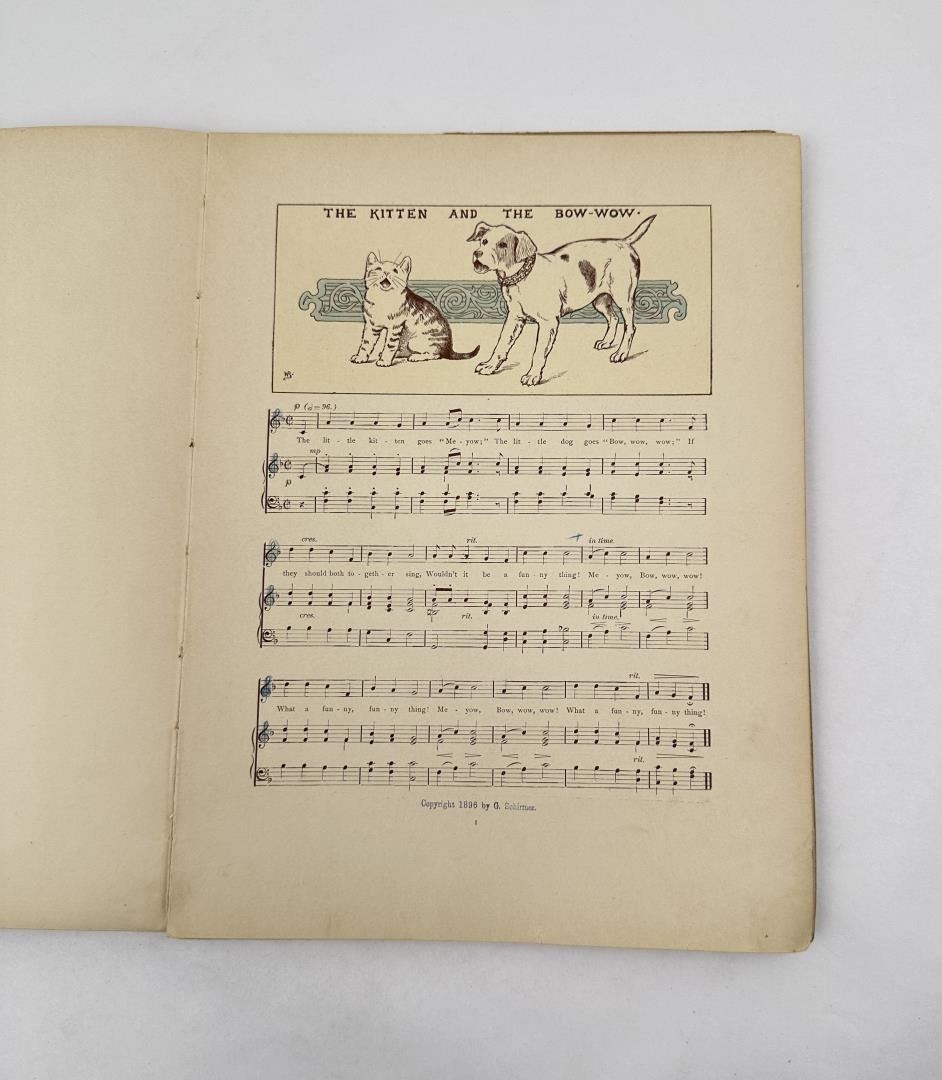 THE KITTEN AND THE BOW-WOW.
WB.
p (𝅗𝅥 = 96.)
The lit - tle kit - ten goes "Me - yow;" The lit - tle dog goes "Bow, wow, wow;" If
mp
p
cres. rit. in time.
they should both to - geth - er sing, Wouldn't it be a fun - ny thing! Me - yow, Bow, wow, wow!
cres. rit. in time.
rit.
What a fun - ny, fun - ny thing! Me - yow, Bow, wow, wow! What a fun - ny, fun - ny thing!
rit.
Copyright 1896 by G. Schirmer.
1